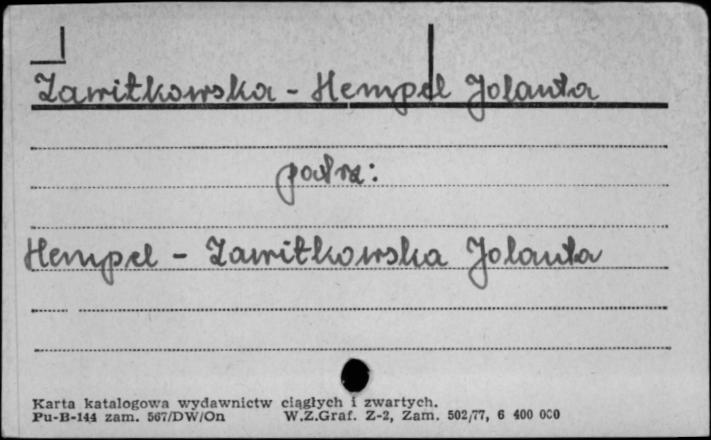 Zawitkowska - Hempel Jolanta
patrz:
Hempel - Zawitkowska Jolanta
Karta katalogowa wydawnictw ciągłych i zwartych.
Pu-B-144 zam. 567/DW/On W.Z.Graf. Z-2, Zam. 502/77, 6 400 000